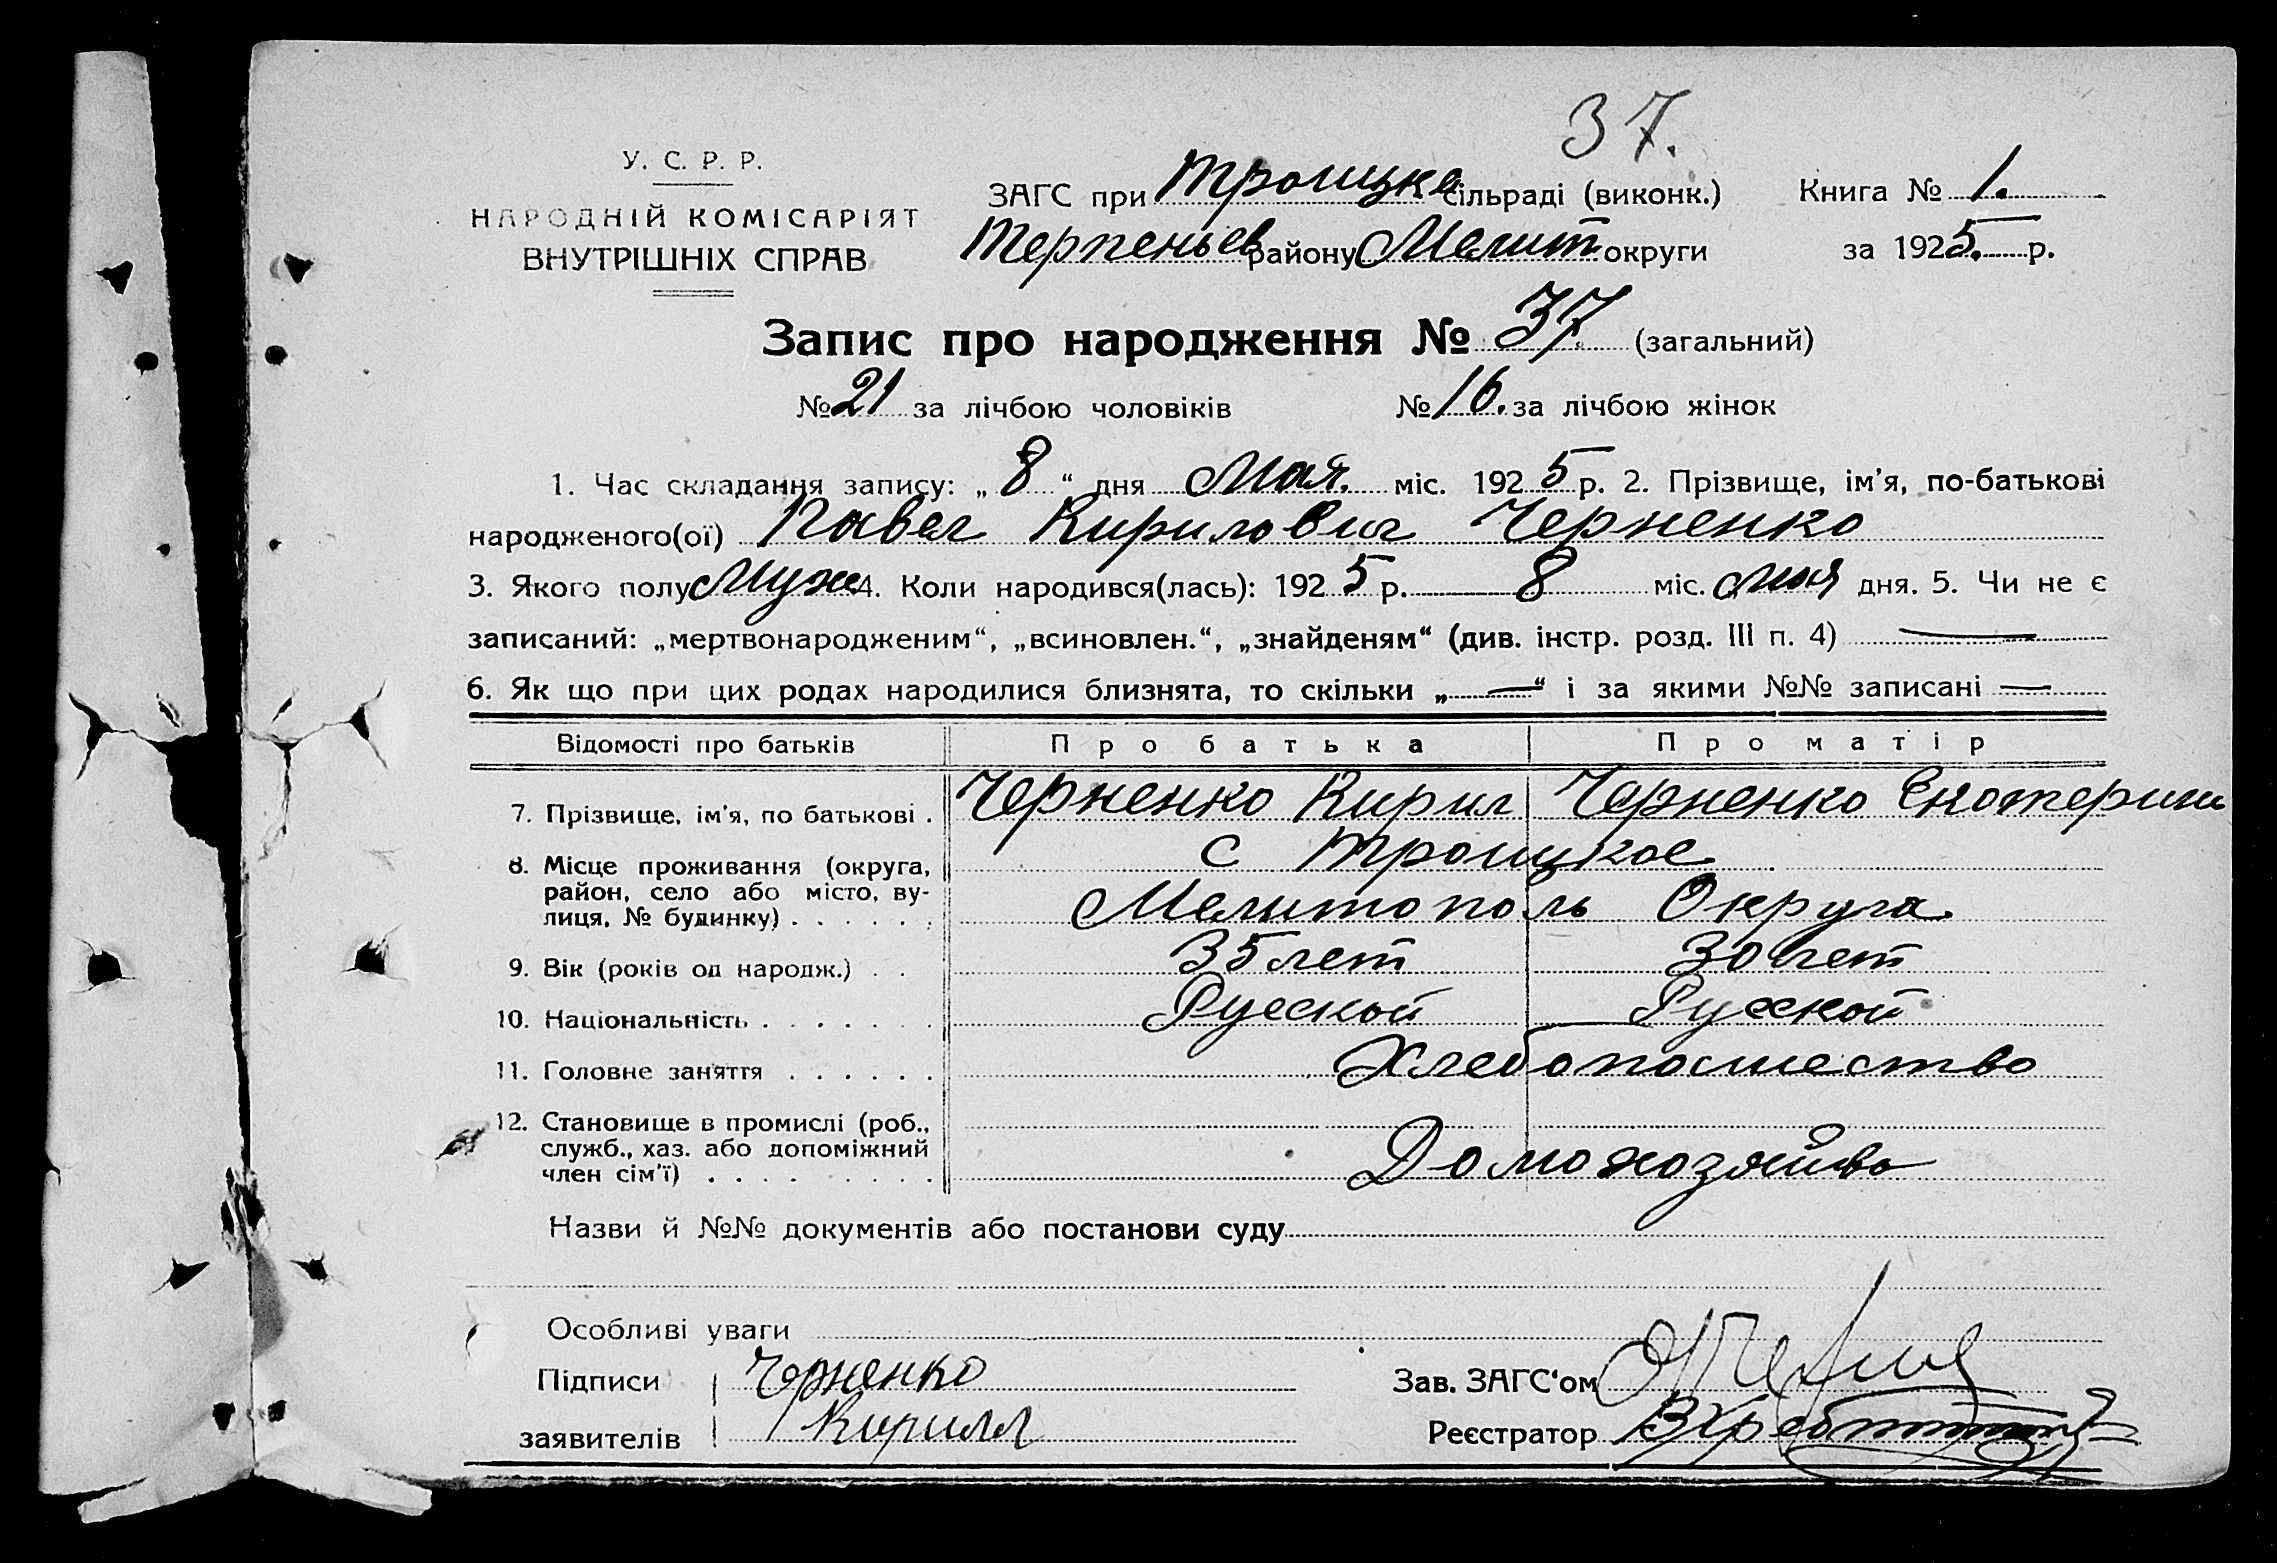 37.
У. С. Р. Р.
НАРОДНІЙ КОМІСАРІЯТ
ВНУТРІШНІХ СПРАВ
ЗАГС при Троицка сільраді (виконк.) Книга № 1.
Терпеньев району Мелит округи за 1925. р.
Запис про народження № 37. (загальний)
№ 21 за лічбою чоловіків № 16. за лічбою жінок
1. Час складання запису: „ 8 “ дня Мая. міс. 1925 р. 2. Прізвище, ім'я, по-батькові
народженого(ої) Павел Кирилович Черненко
3. Якого полу Муж 4. Коли народився(лась): 1925 р. 8 міс. мая дня. 5. Чи не є
записаний: „мертвонародженим“, „всиновлен.“, „знайденям“ (див. інстр. розд. III п. 4) —
6. Як що при цих родах народилися близнята, то скільки „ — “ і за якими №№ записані —
Відомості про батьків Про батька Про матір
7. Прізвище, ім'я, по батькові . Черненко Кирил Черненко Екатерина
8. Місце проживання (округа, с Троицкое
район, село або місто, ву-
лиця, № будинку) . . . . . . Мелитополь Округа
9. Вік (років од народж.) . . 35 лет 30 лет
10. Національність . . . . . . . Русской Русской
11. Головне заняття . . . . . . Хлебопашество
12. Становище в промислі (роб.,
служб., хаз. або допоміжний
член сім'ї) . . . . . . . . . Домохозяйво
Назви й №№ документів або постанови суду
Особливі уваги
Підписи Черненко Зав. ЗАГС'ом
заявителів Кирилл Реєстратор